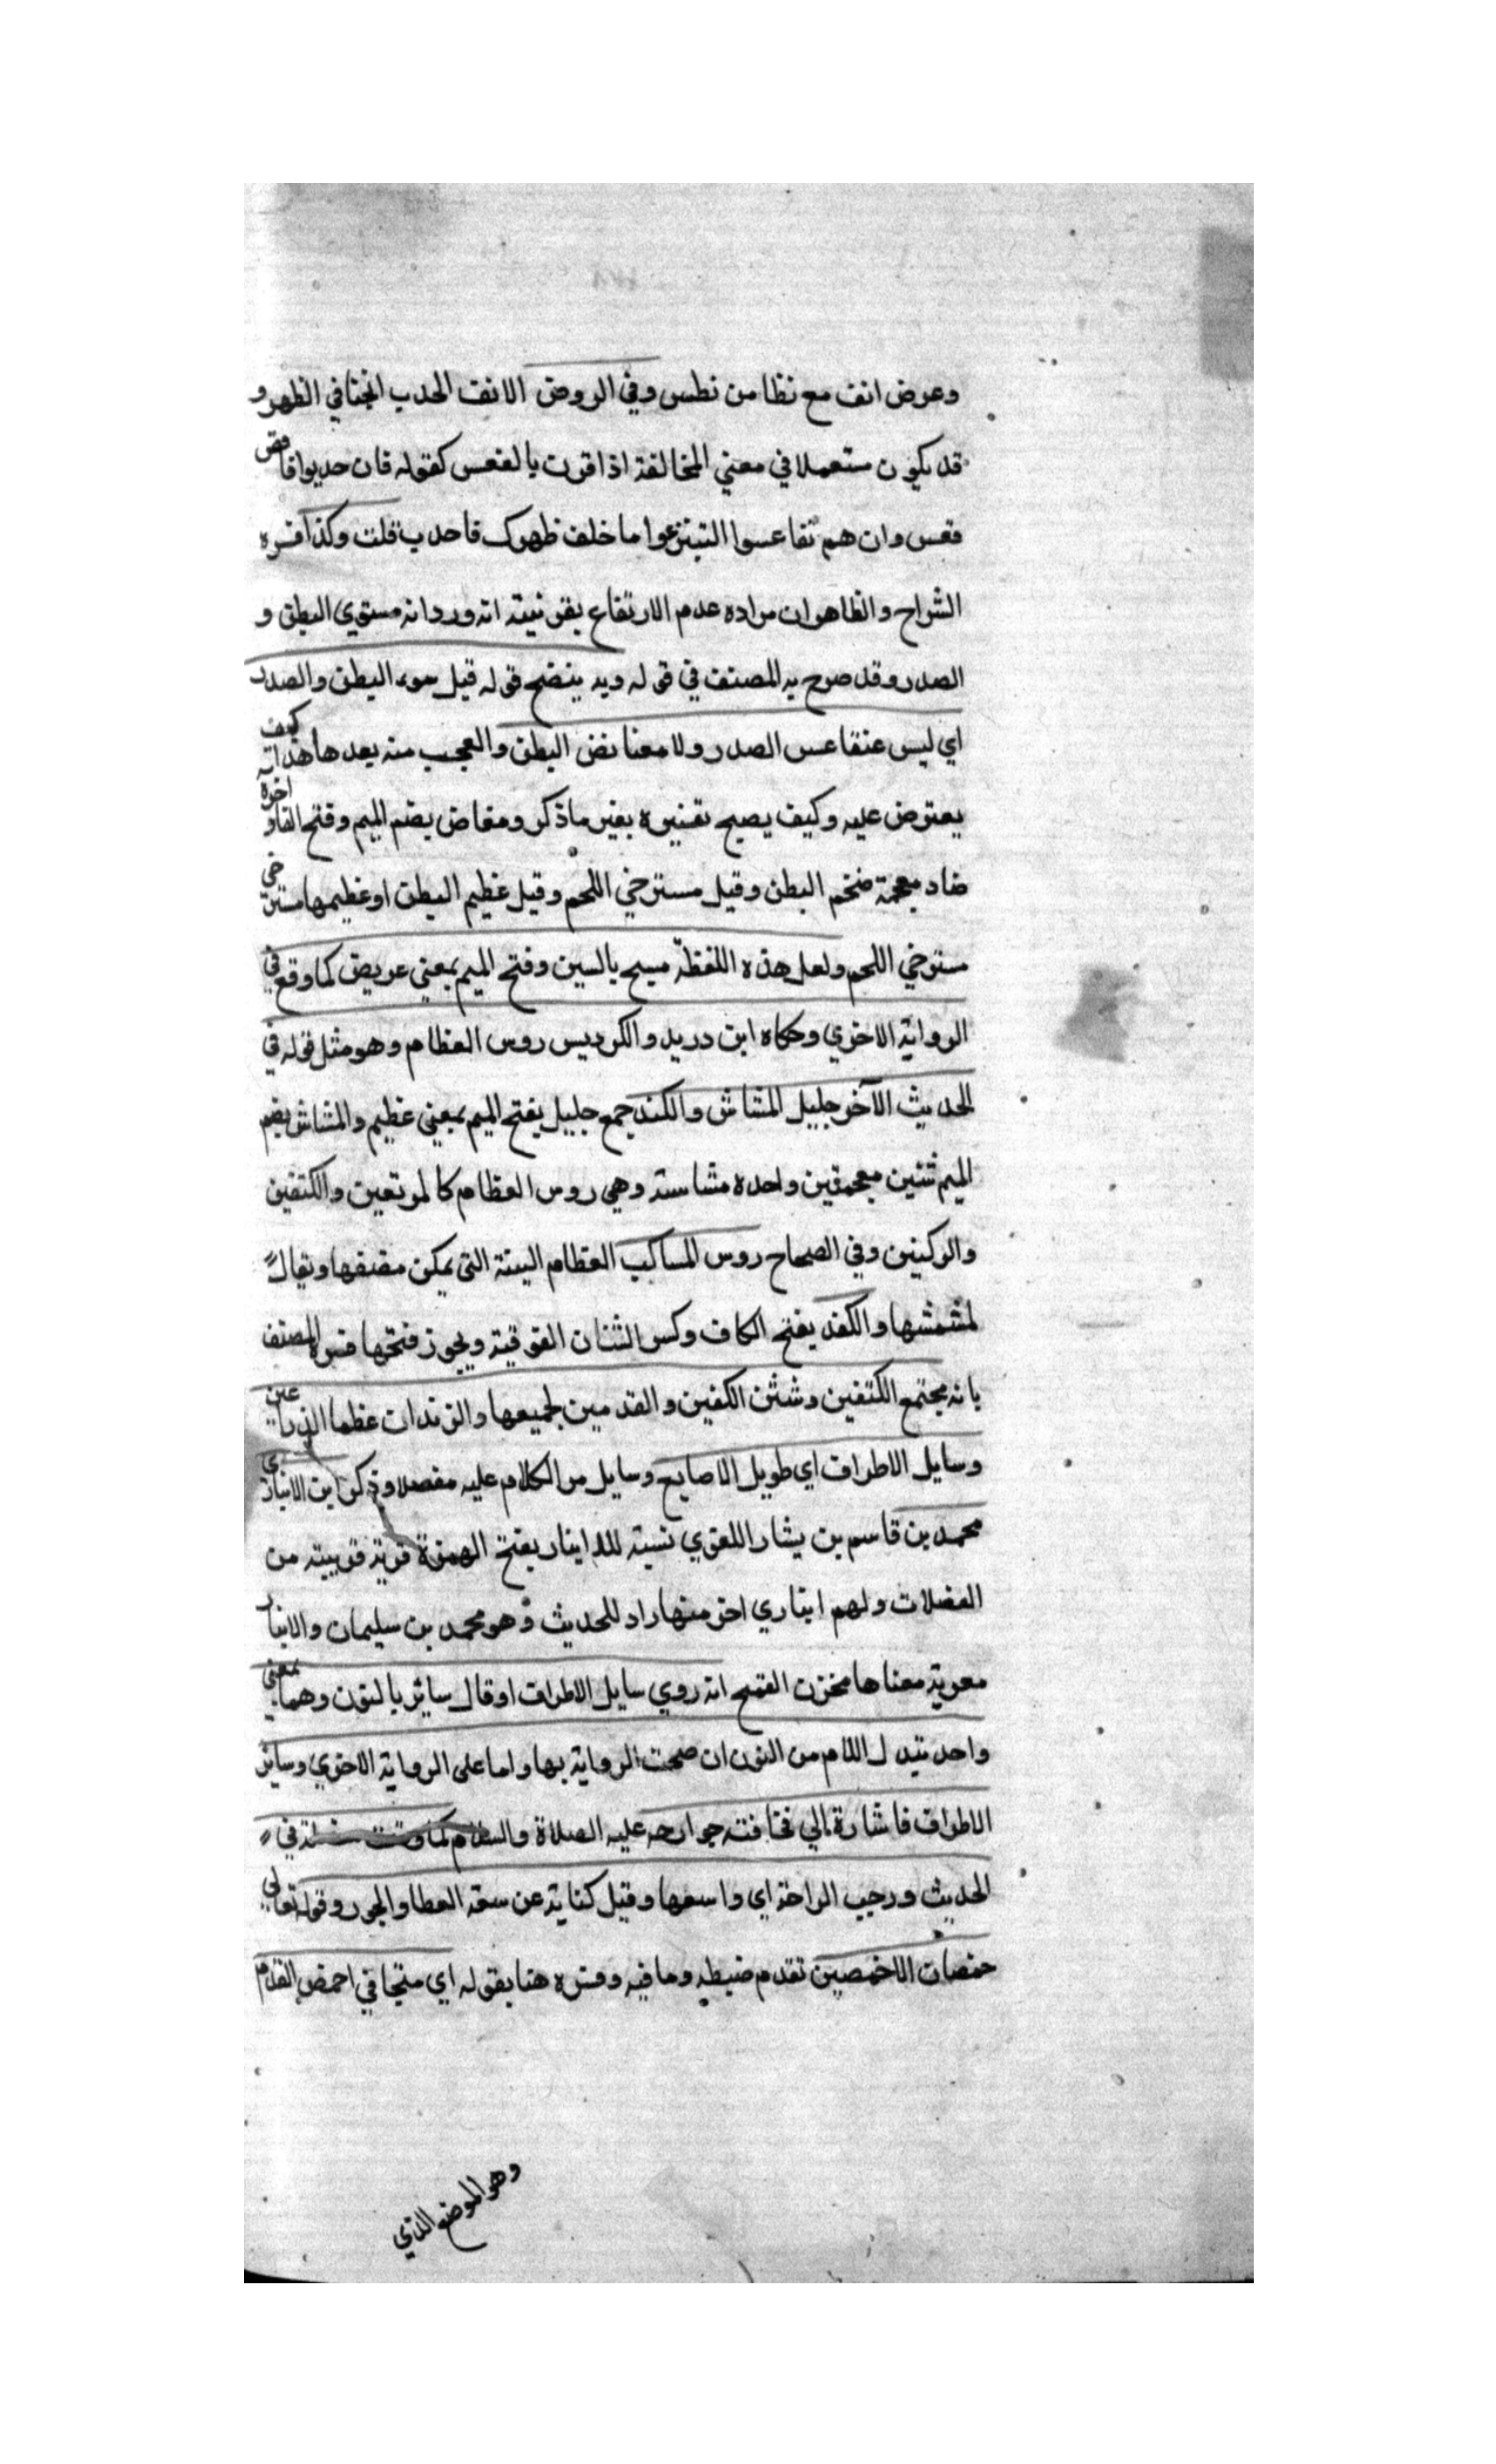 وعرض انف مع نظا من نطس وفي الروض الانف الحدب انحنا في الظهر و
قد يكون مستعملا في معني المخالفة اذا قرت بالقعس كقوله فان حدبوا فاقعس
فقعس وان هم تقاعسوا التينزعوا ما خلف ظهرك فاحدب قلت وكذا فسره
الشراح والظاهر ان مراده عدم الارتفاع بقرنية انه ورد انه مستوي البطن و
الصدر وقد صرح به المصنف في قوله وبه ينضح قوله قبل سوء البطن والصدر
اي ليس عنقاعس الصدر ولا معنا نض البطن والعجب منه بعدها هذا كيف
يعترض عليه وكيف يصح تفسيره بغير ما ذكر ومفاض بضم الميم وفتح الفاو اخره
ضاد معجمة ضخم البطن وقيل مسترخي اللحم وقيل عظيم البطن او عظيمها مسترخي
مسترخي اللحم ولعل هذه اللفظة مسيح بالسين وفتح الميم بمعني عريض كما وقع في
الرواية الاخري وحكاه ابن دريد والكرديس روس العظام وهو مثل قوله في
الحديث الآخر جليل المشاش والكند جمع جليل بفتح الميم بمعني عظيم والمشاش بضم
الميم شنين معجمتين واحده مشاسة وهي روس العظام كالمرتعين والكتفين
والركبنين وفي الصحاح روس المساكب العظام البينة التي يمكن مضنفها ويقال
لمشمشها والكفد بفتح الكاف وكسر الثنان الفوقية ويجوز فتحها فسره المصنف
بانه مجتمع الكتفين وشثن الكفين والقدمين لحميعها والزندان عظما الذراعين
وسايل الاطراف اي طويل الاصابع وسايل مر الكلام عليه مفصلا وذكر ابن الانباري
محمد بن قاسم بن بشار اللغوي نسبة للاينار بفتح الهمزة قرية قريبة من
الفضلات ولهم ابناري اخر منهاراد للحديث وهو محمد بن سليمان والانبار
معربة معناها مخزن القمح انه روي سايل الاطراف او قال سائر بالنون وهما بمعني
واحد تبدل اللام من النون ان صحت الرواية بها واما على الرواية الاخري وسائر
الاطراف فاشارة الي فخافته جوارحه عليه الصلاة والسلام كما وقعت في
الحديث ورحيب الراحة اي واسعها وقيل كناية عن سعة العطا والجود وقوله تعالي
خمصان الاخمصين تقدم ضبطه وما فيه وفسره هنا بقوله اي متجافي اخمص القدم
وهو الموضع الذي